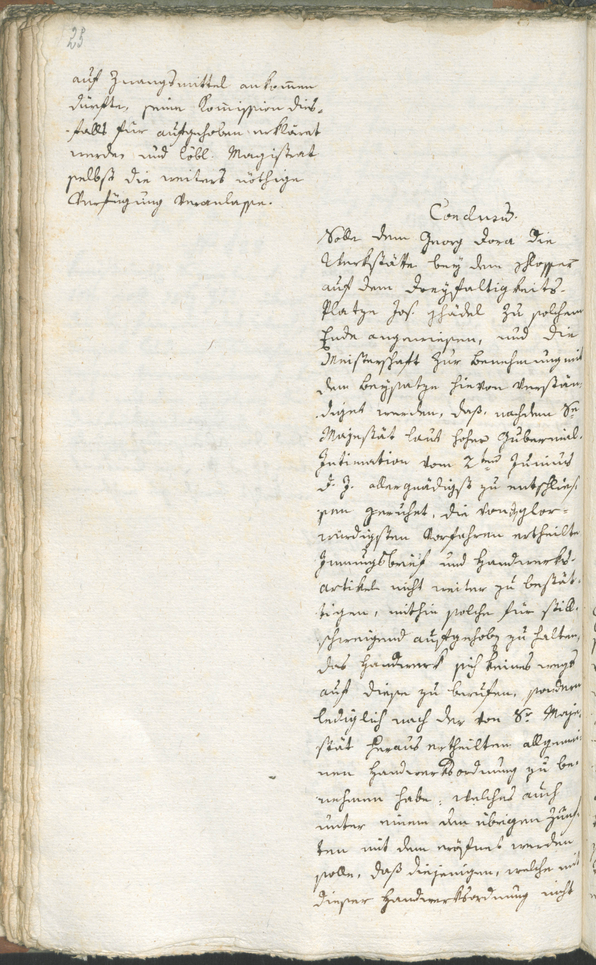 23
auf Zwangsmittel ankommen
dürfte, seine Kommission dies-
falls für aufgehoben erkläret
werde, und löbl. Magistrat
selbst die weiters nöthige
Verfügung veranlasse.
Conclusum.
Solle dem Georg Dora die
Werkstätte bey dem Schlosser
auf dem Dreyfaltigkeits-
Platze Jos. Schädel zu solchem
Ende angewiesen, und die
Meisterschaft zur Benehmung mit
dem Beysatze hievon verstän-
diget werden, daß, nachdem Se
Majestät laut hoher Gubernial-
Intimation vom 2ten Junius
d. J. allergnädigst zu entschlies-
sen geruhet, die von glor-
würdigsten Vorfahren ertheilte
Innungsbrief und Handwerks-
artikeln nicht weiter zu bestät-
tigen, mithin solche für still-
schweigend aufgehoben zu halten,
das Handwerk sich keines wegs
auf diese zu berufen, sondern
lediglich nach der von Sr Maje-
stät heraus ertheilten allgemei-
nen Handwerksordnung zu be-
nehmen habe; welches auch
unter einem den übrigen Zünf-
ten mit dem eröfnet werden
solle, daß diejenigen, welche mit
dieser Handwerksordnung nicht